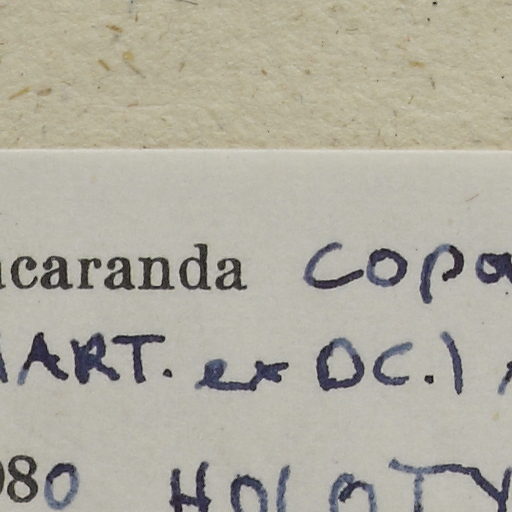 acaranda copa
MART. ex DC.)
980 HOLOTY